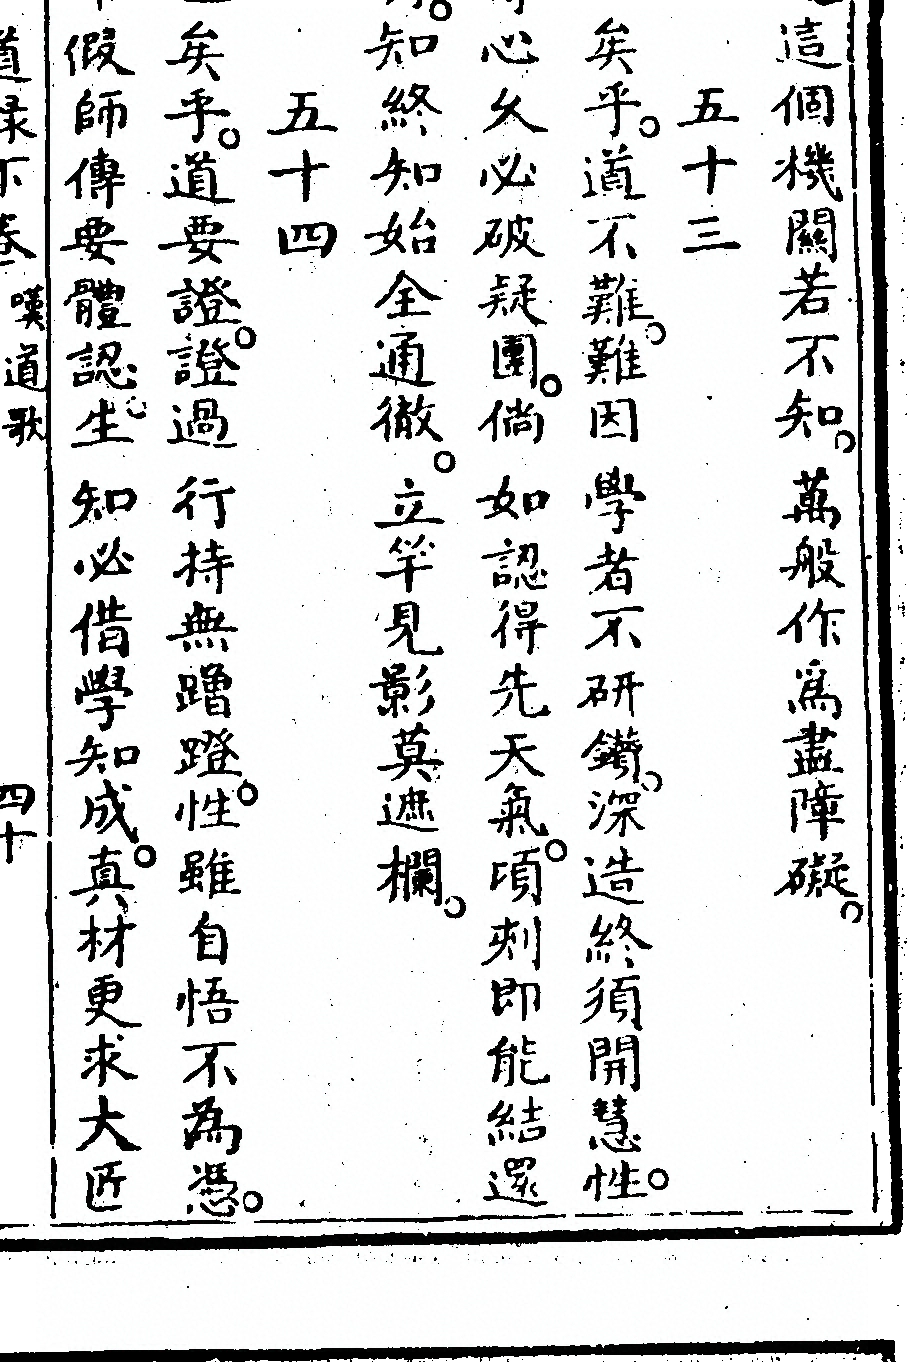 這個機關若不知。萬般作爲盡障礙。
五十三
矣乎。道不難。難因學者不研鑽。深造終須開慧性。
心久必破疑團。倘如認得先天氣。頃刻即能結還
知終知始全通徹。立竿見影莫遮欄。
五十四
矣乎。道要證。證過行持無蹭蹬。性雖自悟不為憑。
假師傳要體認。生知必借學知成。真材更求大匠
道錄下卷 嘆道歌 四十